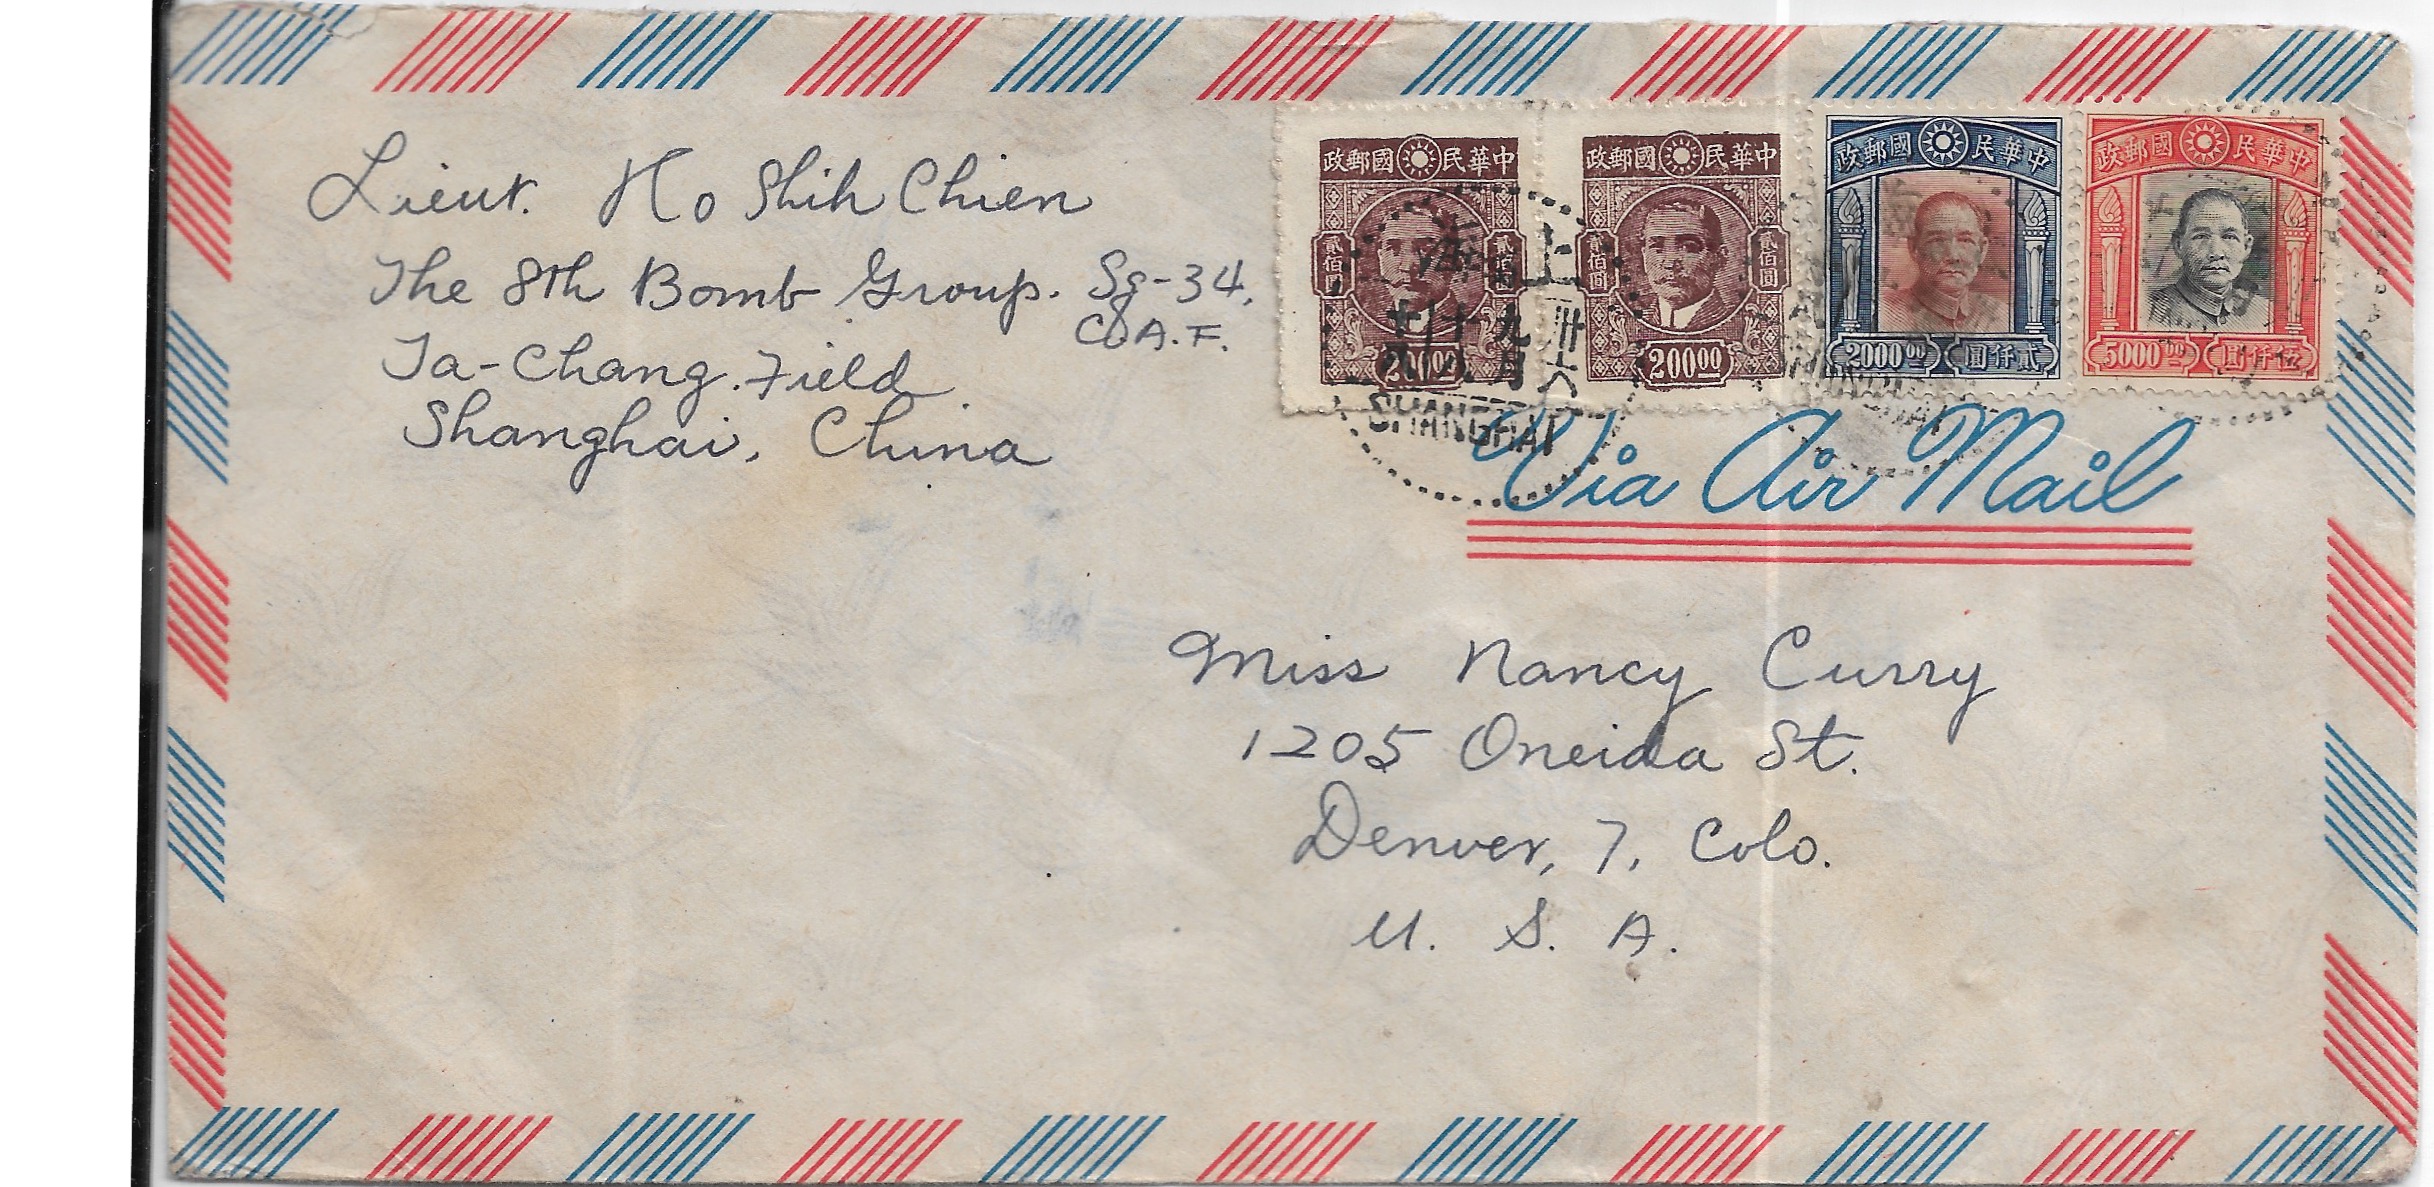 Lieut. Ho Shih Chien
The 8th Bomb Group. Sq-34,
C.A.F.
Ta-Chang Field
Shanghai, China
政郵國 民華中
貳佰圓 貳佰圓
200.00
政郵國 民華中
貳佰圓 貳佰圓
200.00
政郵國 民華中
2000.00 圓仟貳
政郵國 民華中
5000.00 圓仟伍
上海
卅六
九月
十八
SHANGHAI
SHANGHAI
Via Air Mail
Miss Nancy Curry
1205 Oneida St.
Denver, 7, Colo.
U. S. A.